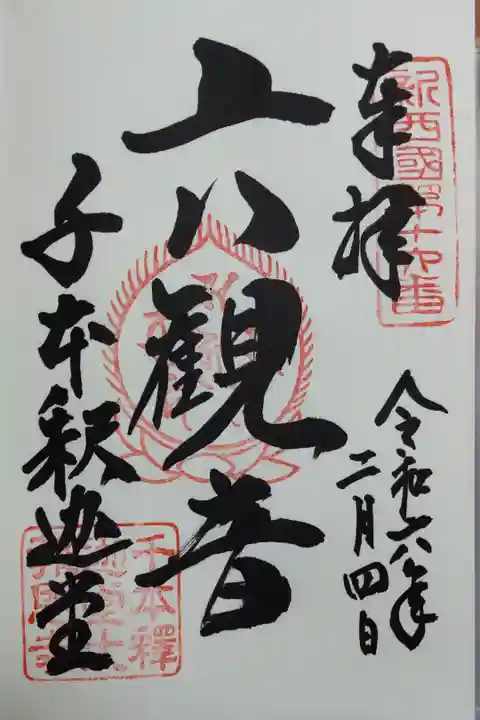 奉拝
新西國第十六番
令和六年
二月四日
六観音
千本釈迦堂
千本釋